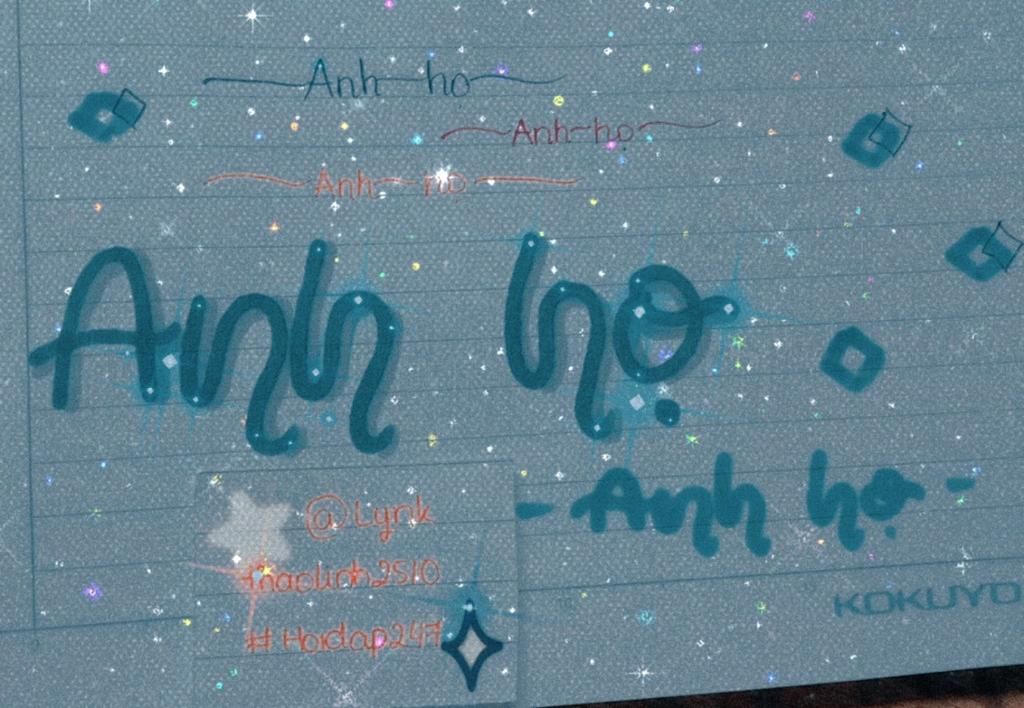 Anh họ
Anh họ
Anh họ
Anh họ
- Anh họ -
@Lynk
thaolinh2510
#Hoidap247
KOKUYO